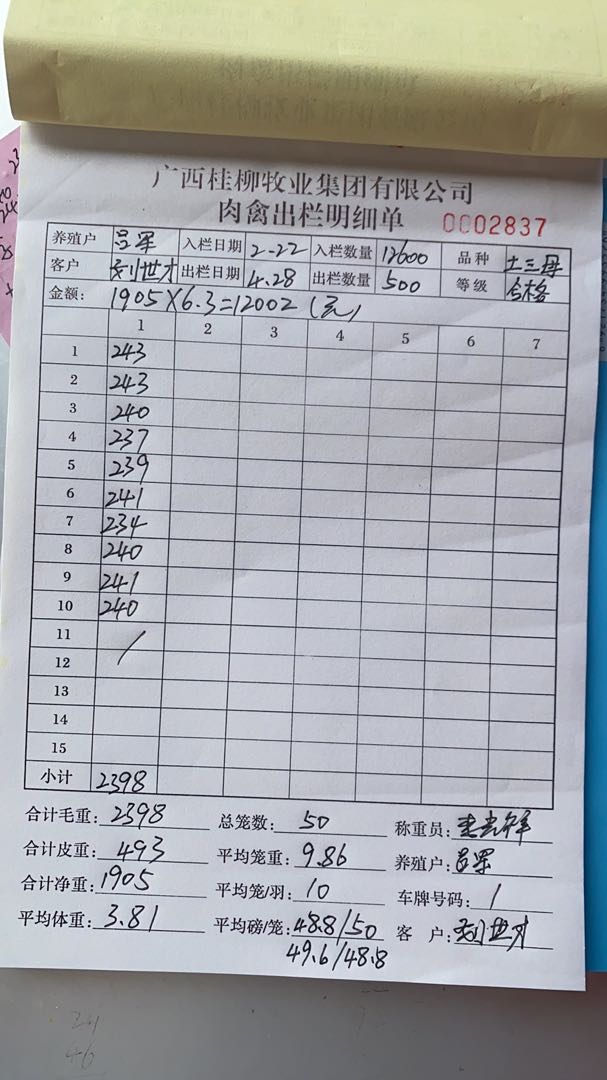 广西桂柳牧业集团有限公司
肉禽出栏明细单 0002837
养殖户 吕军 入栏日期 2-22 入栏数量 12600 品种 土三母
客户 刘世才 出栏日期 4.28 出栏数量 500 等级 合格
金额: 1905×6.3=12002(元)
1 2 3 4 5 6 7
1 243
2 243
3 240
4 237
5 239
6 241
7 234
8 240
9 241
10 240
11 /
12
13
14
15
小计 2398
合计毛重: 2398 总笼数: 50 称重员:
合计皮重: 493 平均笼重: 9.86 养殖户: 吕军
合计净重: 1905 平均笼/羽: 10 车牌号码: /
平均体重: 3.81 平均磅/笼: 48.8/50 客 户: 刘世才
49.6/48.8